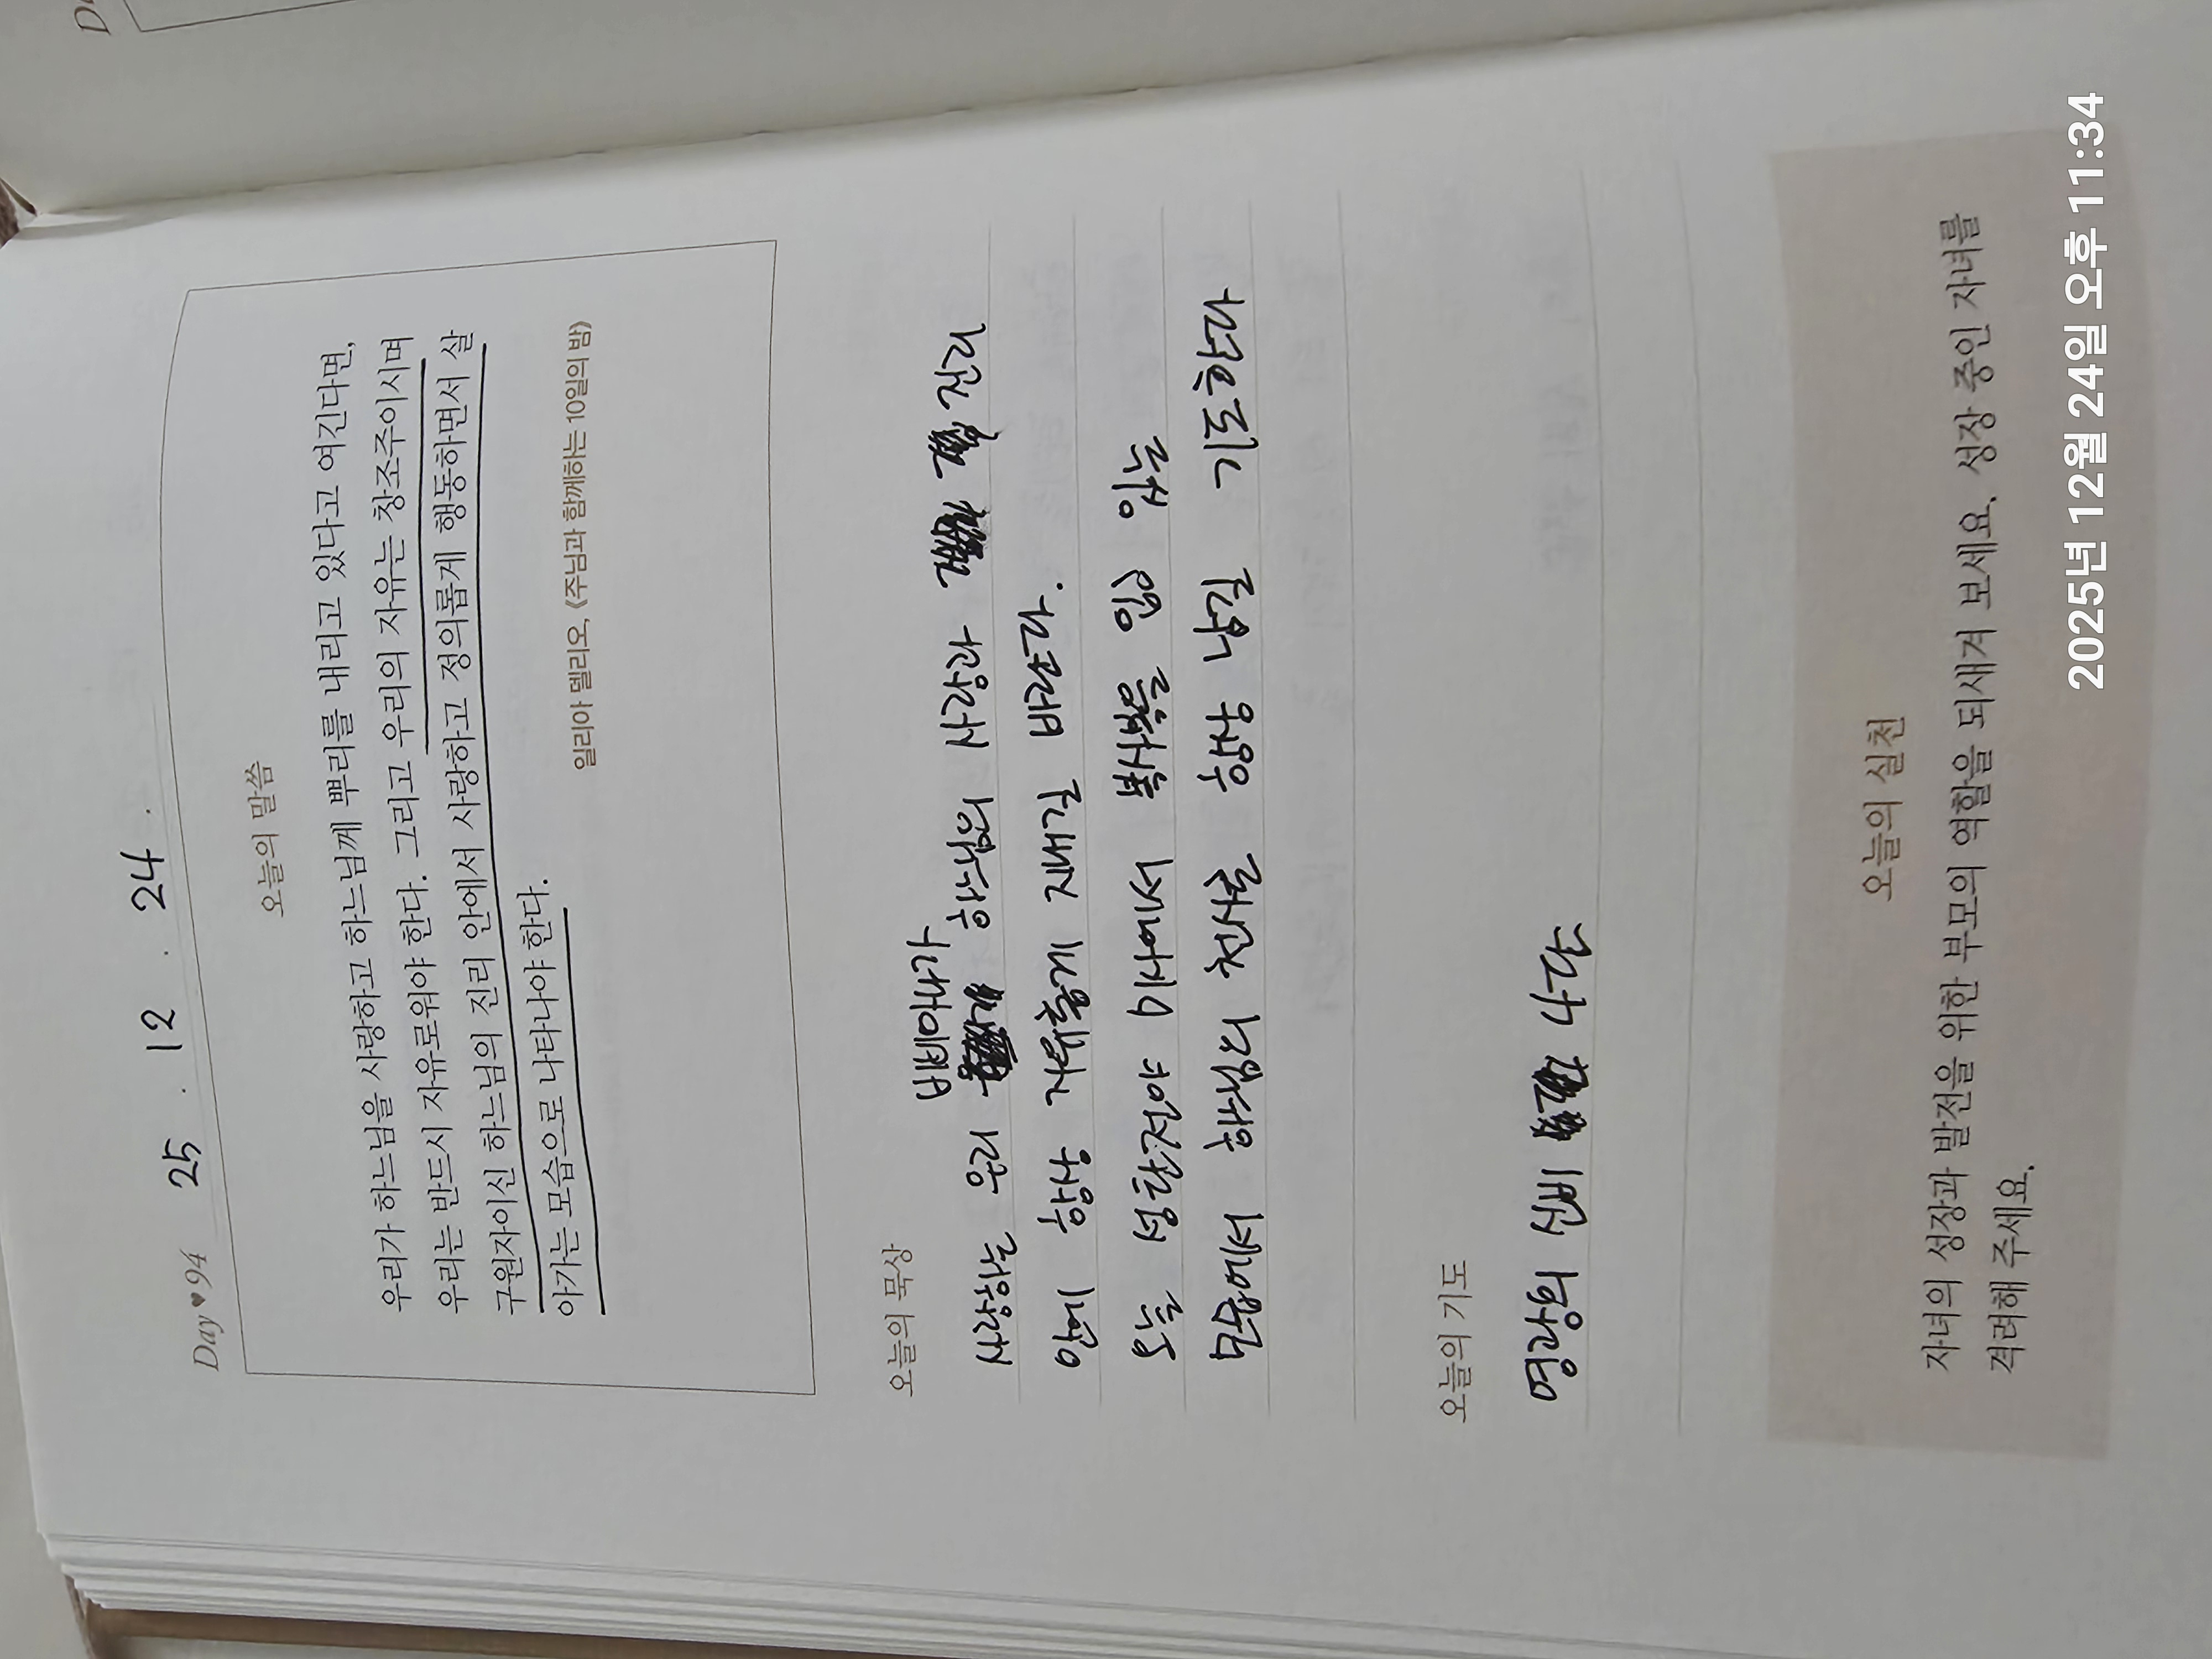 Day♥94 25 . 12 . 24 .
오늘의 말씀
우리가 하느님을 사랑하고 하느님께 뿌리를 내리고 있다고 여긴다면,
우리는 반드시 자유로워야 한다. 그리고 우리의 자유는 창조주이시며
구원자이신 하느님의 진리 안에서 사랑하고 정의롭게 행동하면서 살
아가는 모습으로 나타나야 한다.
일리아 델리오, 《주님과 함께하는 10일의 밤》
오늘의 묵상
베베아나가
사랑하는 우리 하느님의 사랑과
안에 항상 길 바란다.
오늘 성탄전야 미사에서
모습에서 하느님의 천사를
오늘의 기도
영광의 신비 4단
오늘의 실천
자녀의 성장과 발전을 위한 부모의 역할을 되새겨 보세요. 성장 중인 자녀를
격려해 주세요.
2025년 12월 24일 오후 11:34